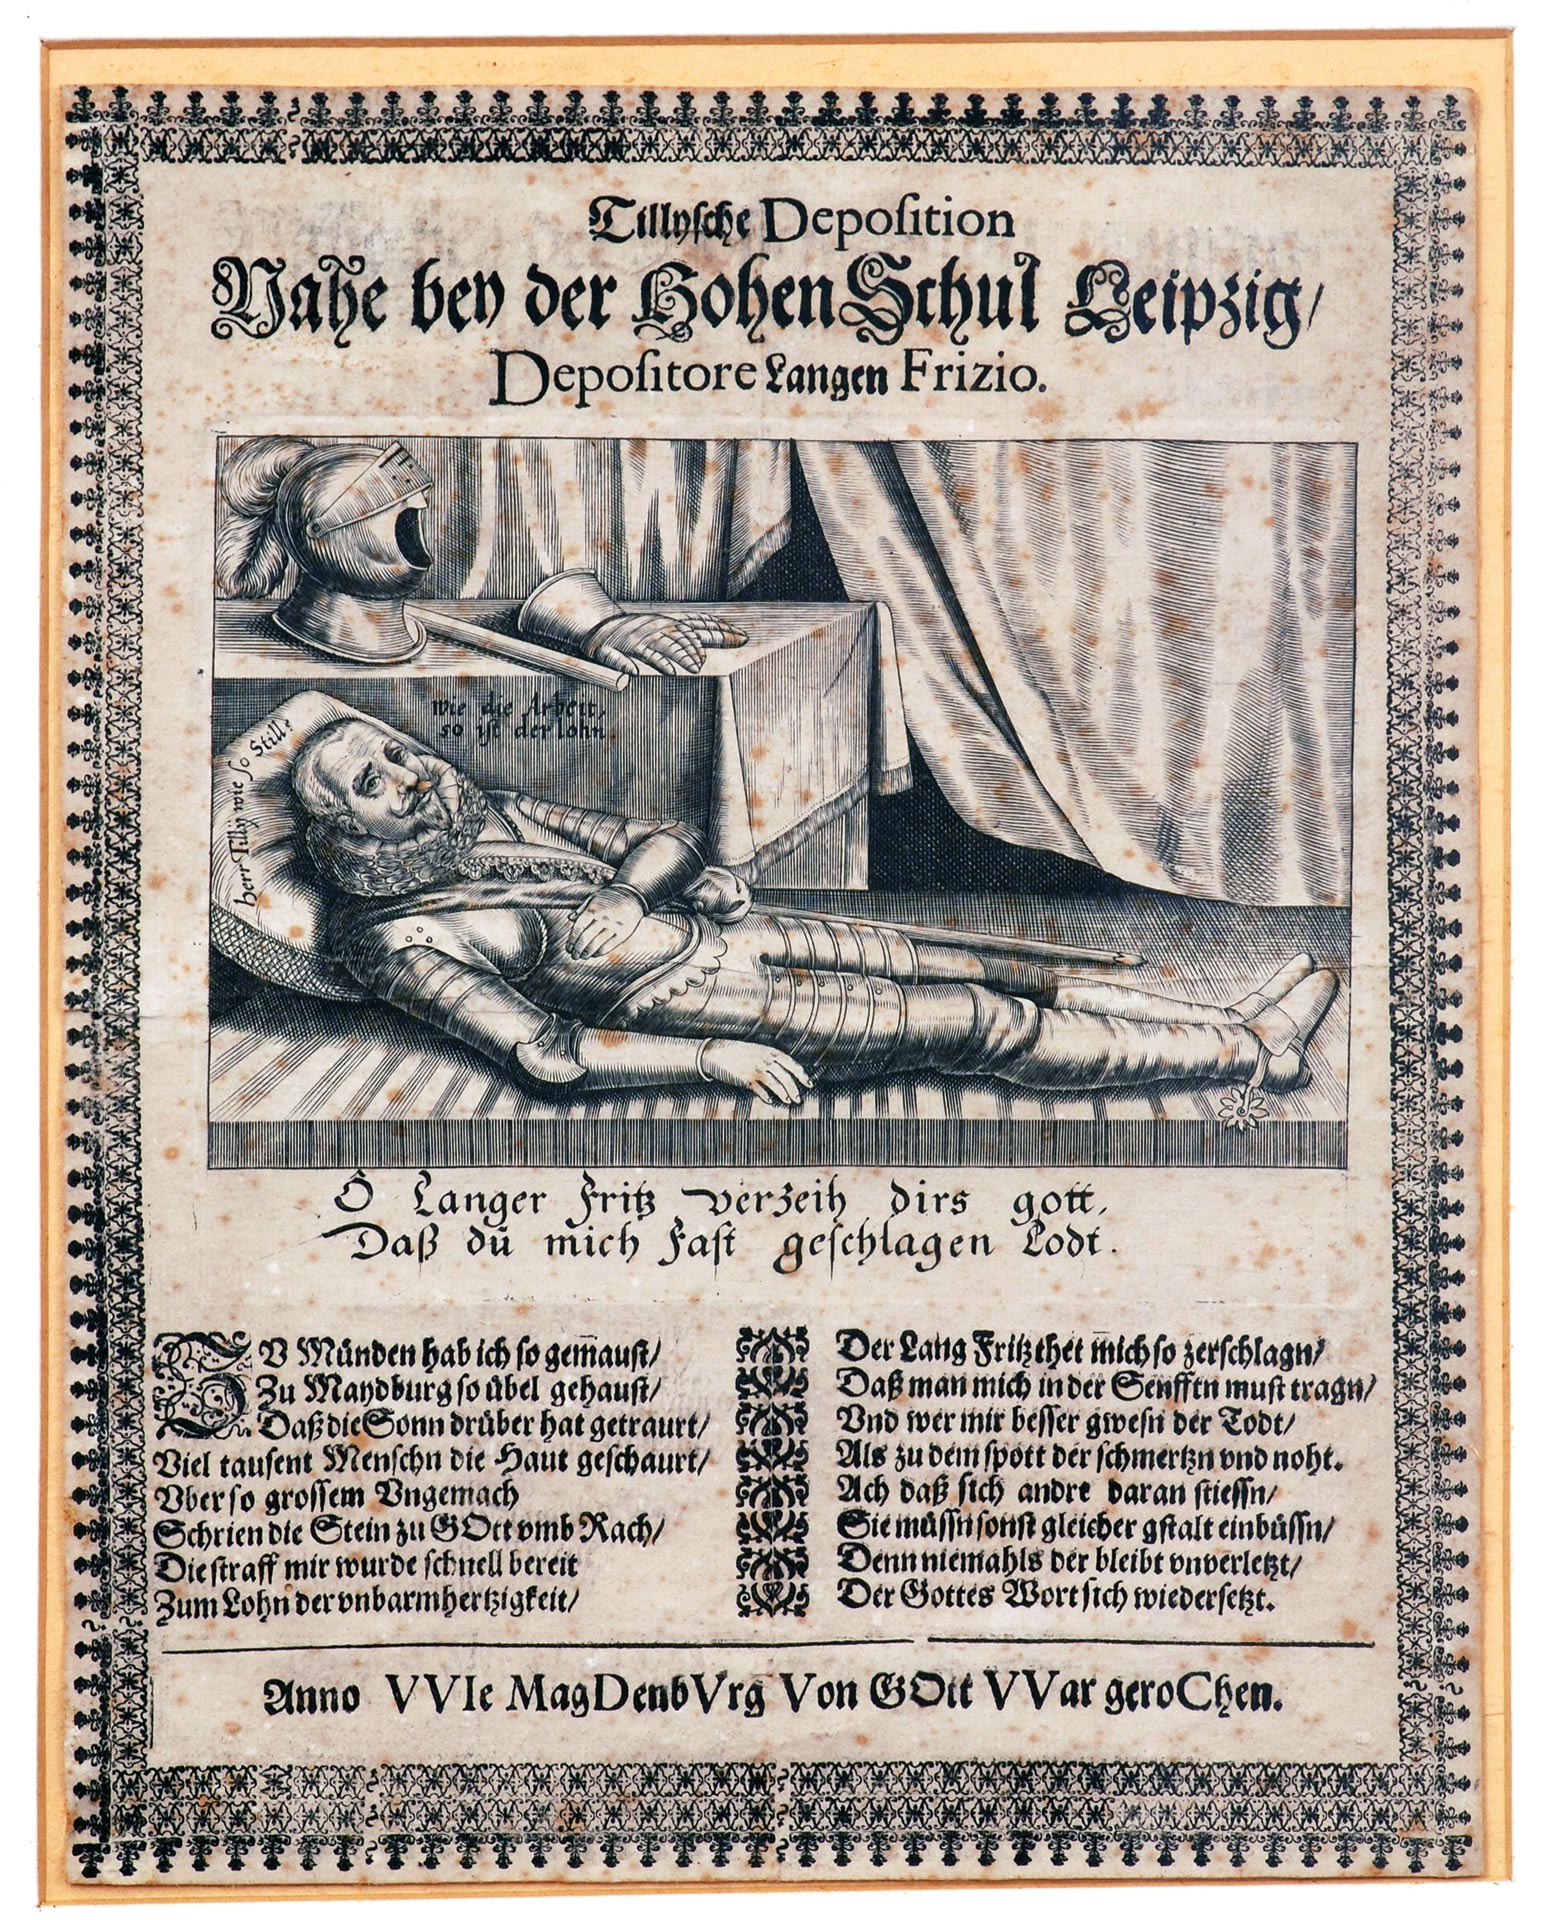 Tillysche Deposition
Nahe bey der Hohen Schul Leipzig/
Depositore Langen Frizio.
wie die Arbeit,
so ist der lohn.
herr Tilly wie so Stille
O Langer Fritz verzeih dirs gott,
Daß dū mich Fast geschlagen Todt.
ZV Münden hab ich so gem̄aust/
Zu Maydburg so übel gehaust/
Daß die Sonn drüber hat getraurt/
Viel tausent Menschn die Haut geschaurt/
Vber so grossem Vngemach
Schrien die Stein zu GOtt vmb Rach/
Die straff mir wurde schnell bereit
Zum Lohn der vnbarmhertzigkeit/
Der Lang Fritz thet mich so zerschlagn/
Daß man mich in der Senfften must tragn/
Vnd wer mir besser gwesn der Todt/
Als zu dem spott der schmertzn vnd noht.
Ach daß sich andre daran stiessn/
Sie müssn sonst gleicher gstalt einbüssn/
Denn niemahls der bleibt vnverletzt/
Der Gottes Wort sich wiedersetzt.
Anno VVIe MagDenbVrg Von GOtt VVar geroChen.